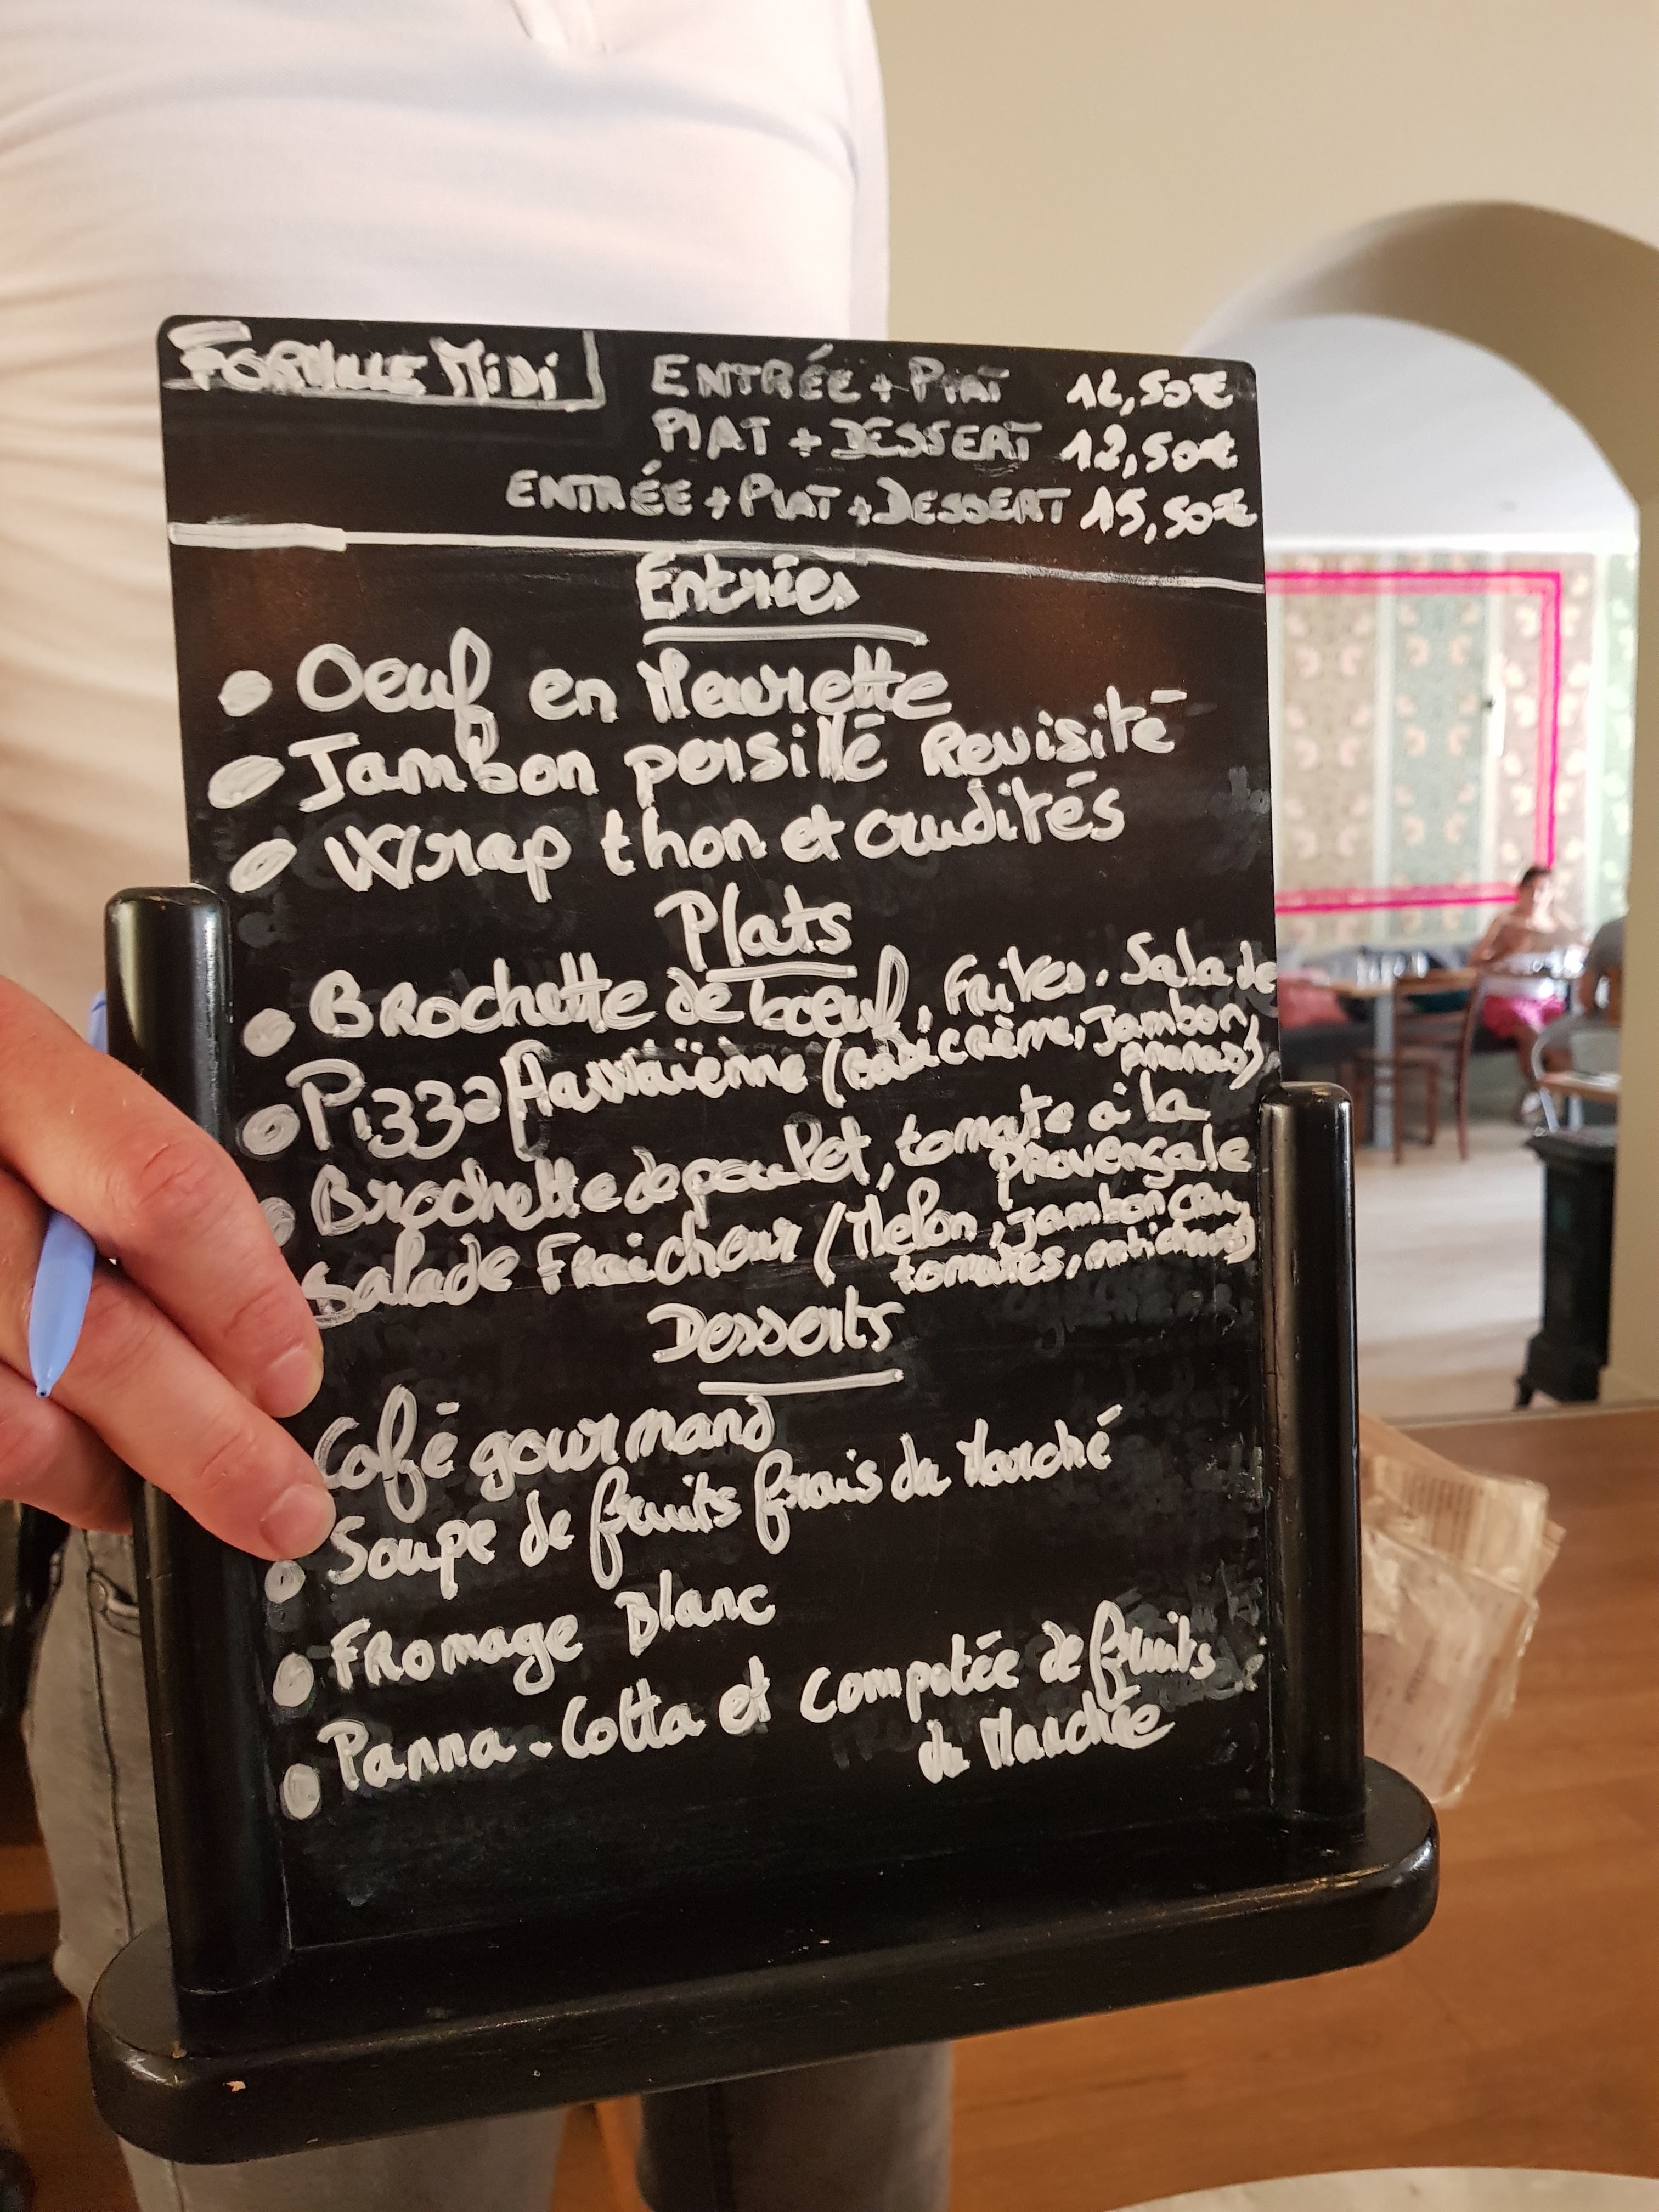 FORMULE MiDi
ENTRÉE + PlAT 12,50€
PlAT + DESSERT 12,50€
ENTRÉE + PlAT + DESSERT 15,50€
Entrées
• Oeuf en Meurette
• Jambon persillé Revisité
• Wrap thon et crudités
Plats
• BRochette de bœuf, Frites. Salade
• Pizza Hawaïenne (Base crème, Jambon,
ananas)
• Brochette de poulet, tomate à la
provençale
Salade Fraicheur (Melon, jambon cru,
tomates, artichauts)
Desserts
Café gourmand
• Soupe de fruits frais du Marché
• FRomage Blanc
• Panna-Cotta et compotée de fruits
du Marché